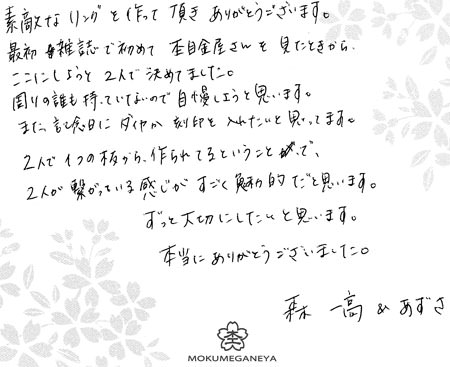 素敵なリングを作って頂きありがとうございます。
最初雑誌で初めて杢目金屋さんを見たときから
ここにしようと2人で決めてました。
周りの誰も持っていないので自慢しようと思います。
また、記念日にダイヤか刻印を入れたいと思ってます。
2人で1つの板から、作られてるということで、
2人が繋がっている感じがすごく魅力的だと思います。
ずっと大切にしたいと思います。
本当にありがとうございました。
森 一高 & あずさ
MOKUMEGANEYA